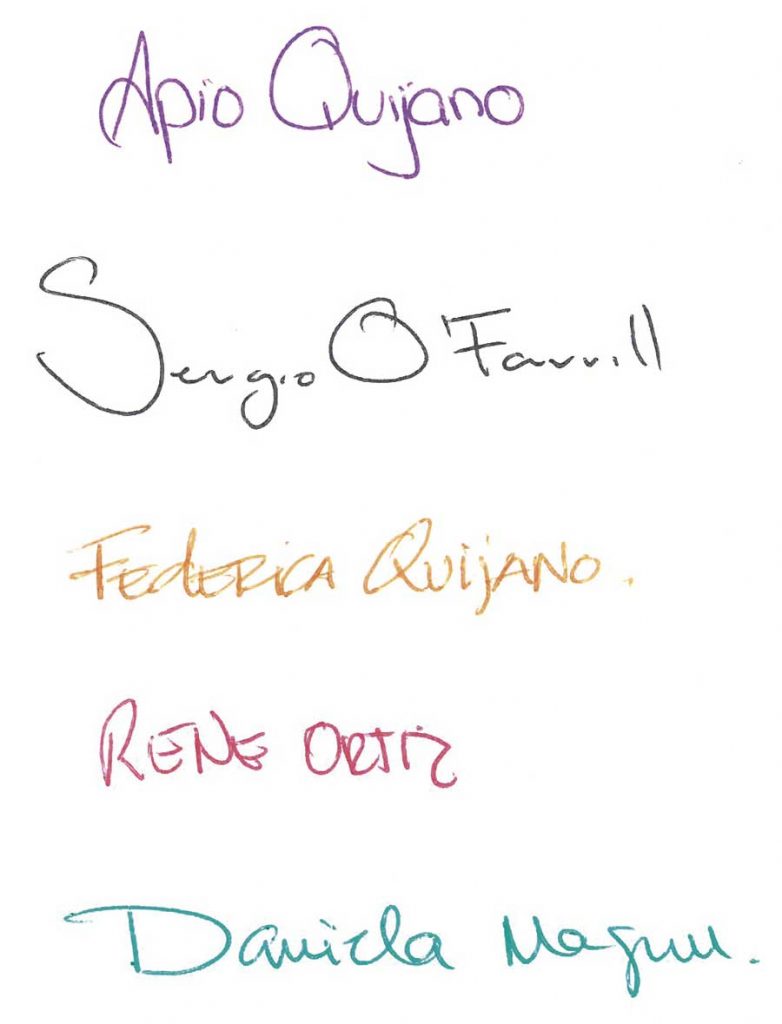 Apio Quijano
Sergio O'Farrill
Federica Quijano.
RENE ORTIZ
Daniela Magun.